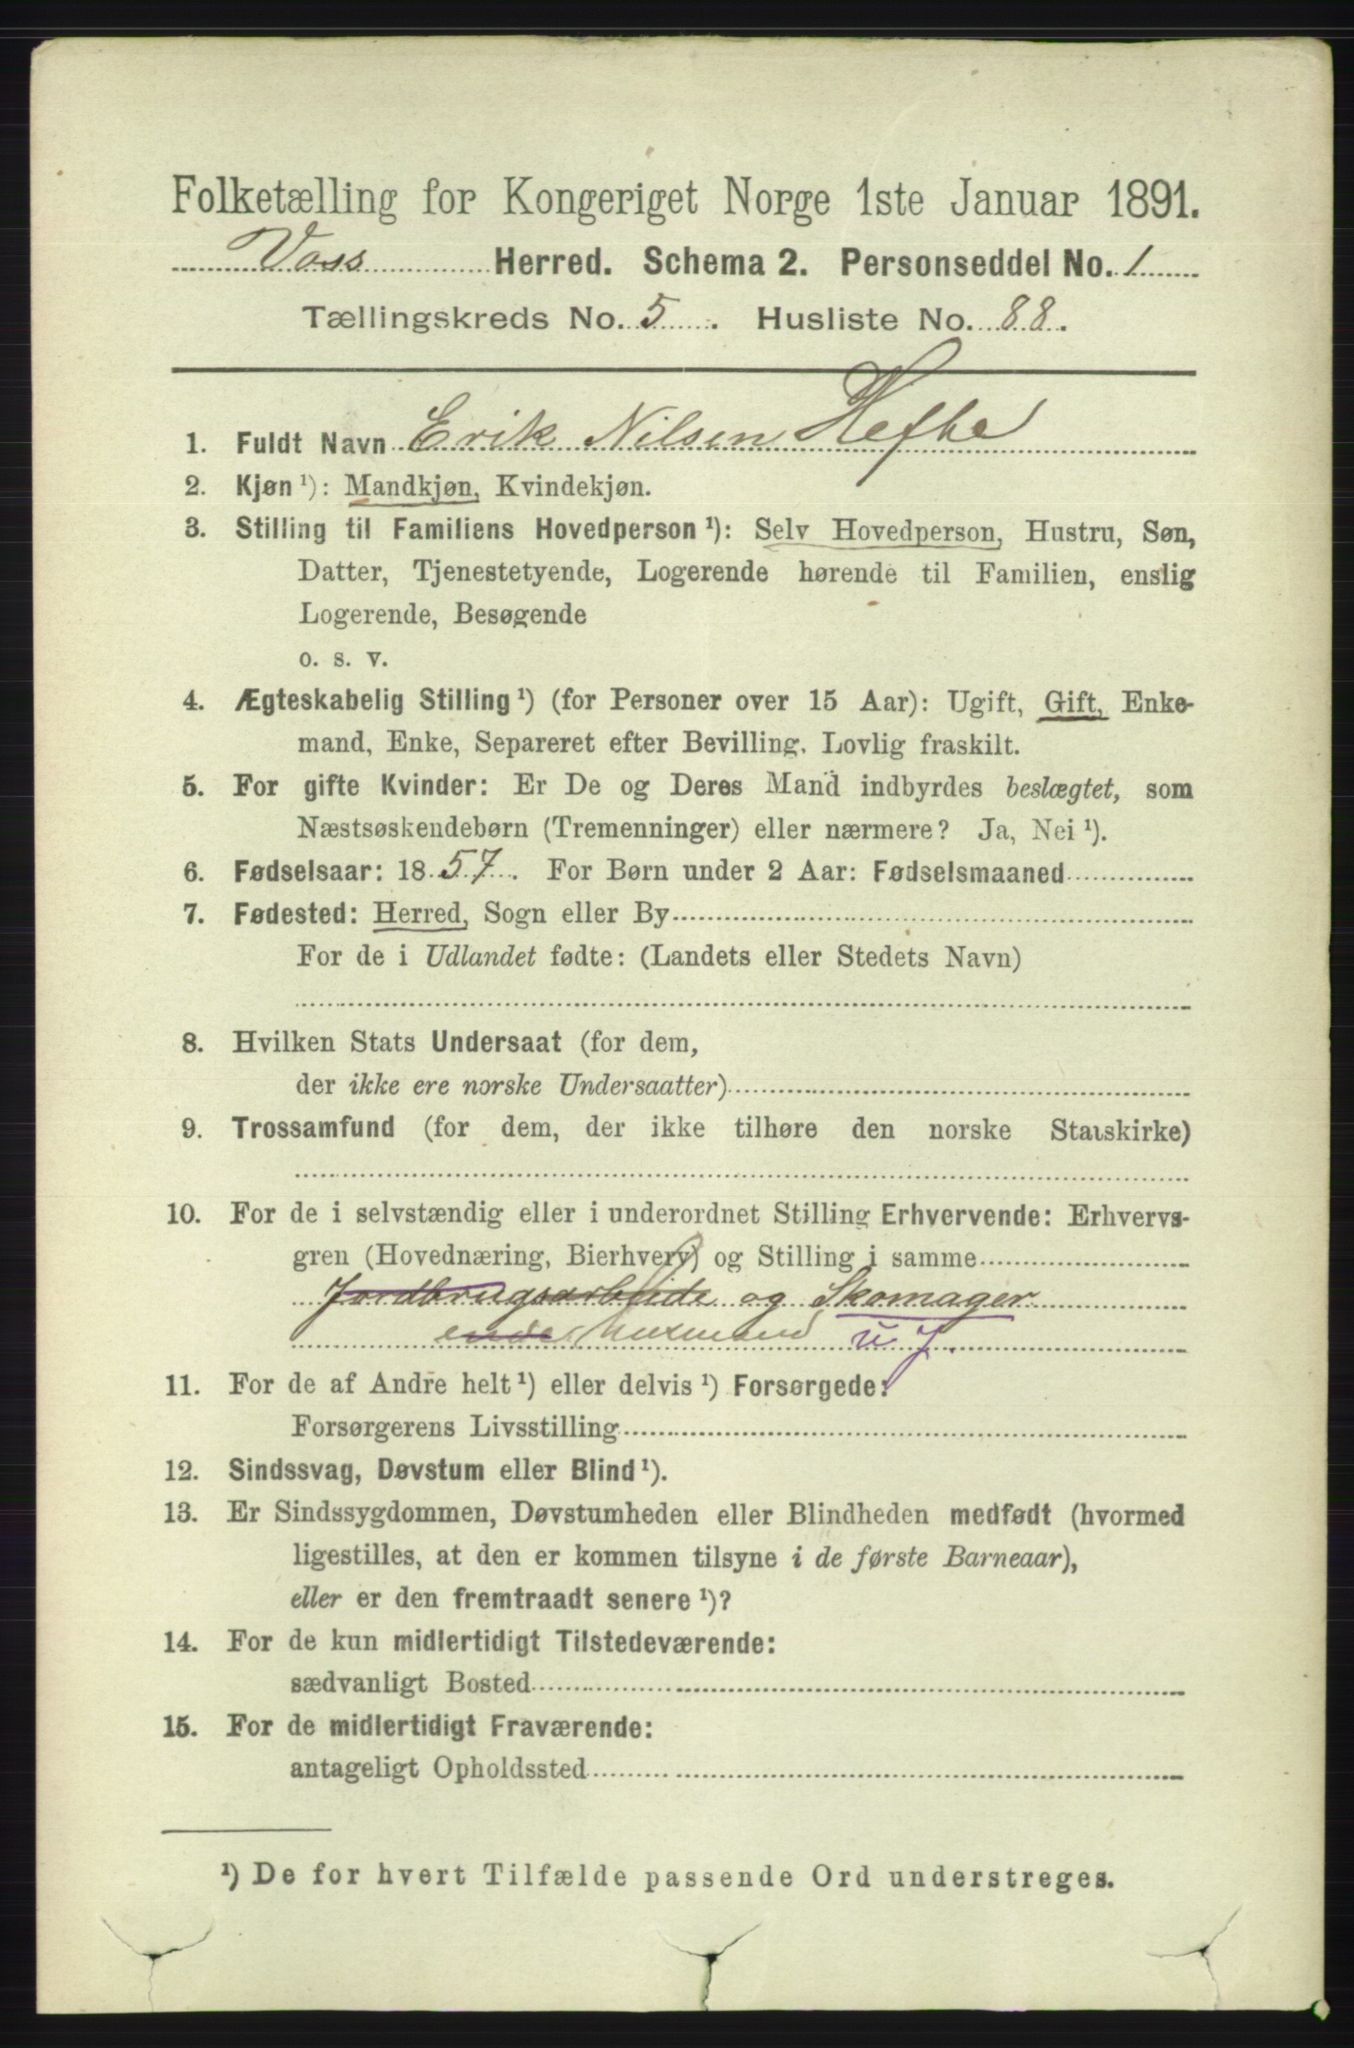 Folketælling for Kongeriget Norge 1ste Januar 1891.
Voss Herred. Schema 2. Personseddel No. 1
Tællingskreds No. 5. Husliste No. 88.
1. Fuldt Navn Erik Nilsen Hefte
2. Kjøn ¹): Mandkjøn, Kvindekjøn.
3. Stilling til Familiens Hovedperson ¹): Selv Hovedperson, Hustru, Søn,
Datter, Tjenestetyende, Logerende hørende til Familien, enslig
Logerende, Besøgende
o. s. v.
4. Ægteskabelig Stilling ¹) (for Personer over 15 Aar): Ugift, Gift, Enke-
mand, Enke, Separeret efter Bevilling. Lovlig fraskilt.
5. For gifte Kvinder: Er De og Deres Mand indbyrdes beslægtet, som
Næstsøskendebørn (Tremenninger) eller nærmere? Ja, Nei ¹).
6. Fødselsaar: 1857. For Børn under 2 Aar: Fødselsmaaned
7. Fødested: Herred, Sogn eller By
For de i Udlandet fødte: (Landets eller Stedets Navn)
8. Hvilken Stats Undersaat (for dem,
der ikke ere norske Undersaatter)
9. Trossamfund (for dem, der ikke tilhøre den norske Statskirke)
10. For de i selvstændig eller i underordnet Stilling Erhvervende: Erhvervs-
gren (Hovednæring, Bierhverv) og Stilling i samme
Jordbrugsarbeide og Skomager
ende Husmand u J.
11. For de af Andre helt ¹) eller delvis ¹) Forsørgede:
Forsørgerens Livsstilling
12. Sindssvag, Døvstum eller Blind ¹).
13. Er Sindssygdommen, Døvstumheden eller Blindheden medfødt (hvormed
ligestilles, at den er kommen tilsyne i de første Barneaar),
eller er den fremtraadt senere ¹)?
14. For de kun midlertidigt Tilstedeværende:
sædvanligt Bosted
15. For de midlertidigt Fraværende:
antageligt Opholdssted
¹) De for hvert Tilfælde passende Ord understreges.